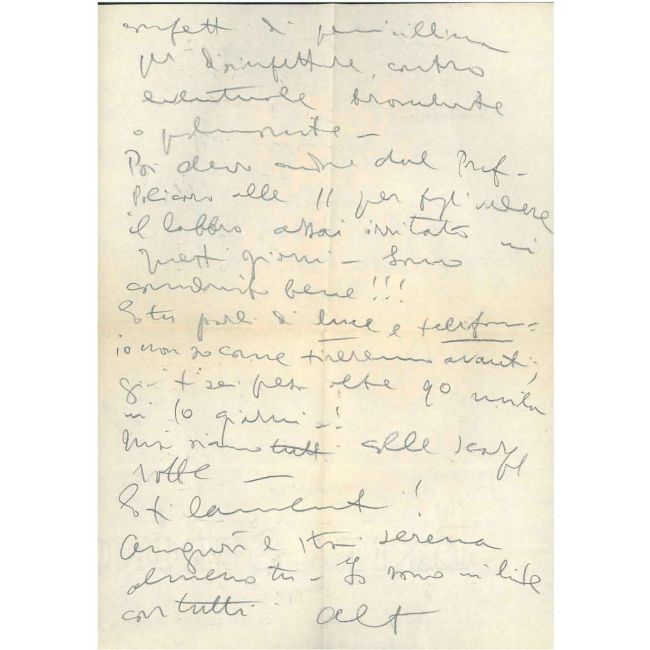 confetti di penicillina
per disinfettare, contro
eventuale bronchite
o polmonite -
Poi devo andare dal Prof-
Policaro alle 11 per fargli vedere
il labbro assai irritato in
questi giorni - Sono
condannato bene!!!
E tu parli di luce e telefon=
io non so come tireremo avanti,
già ti sei presa oltre 90 mila
in 10 giorni -!
Noi siamo tutti alle scarpe
rotte -
E ti lamenti!
Auguri e stai serena
almeno tu - Io sono in lite
con tutti. Alt